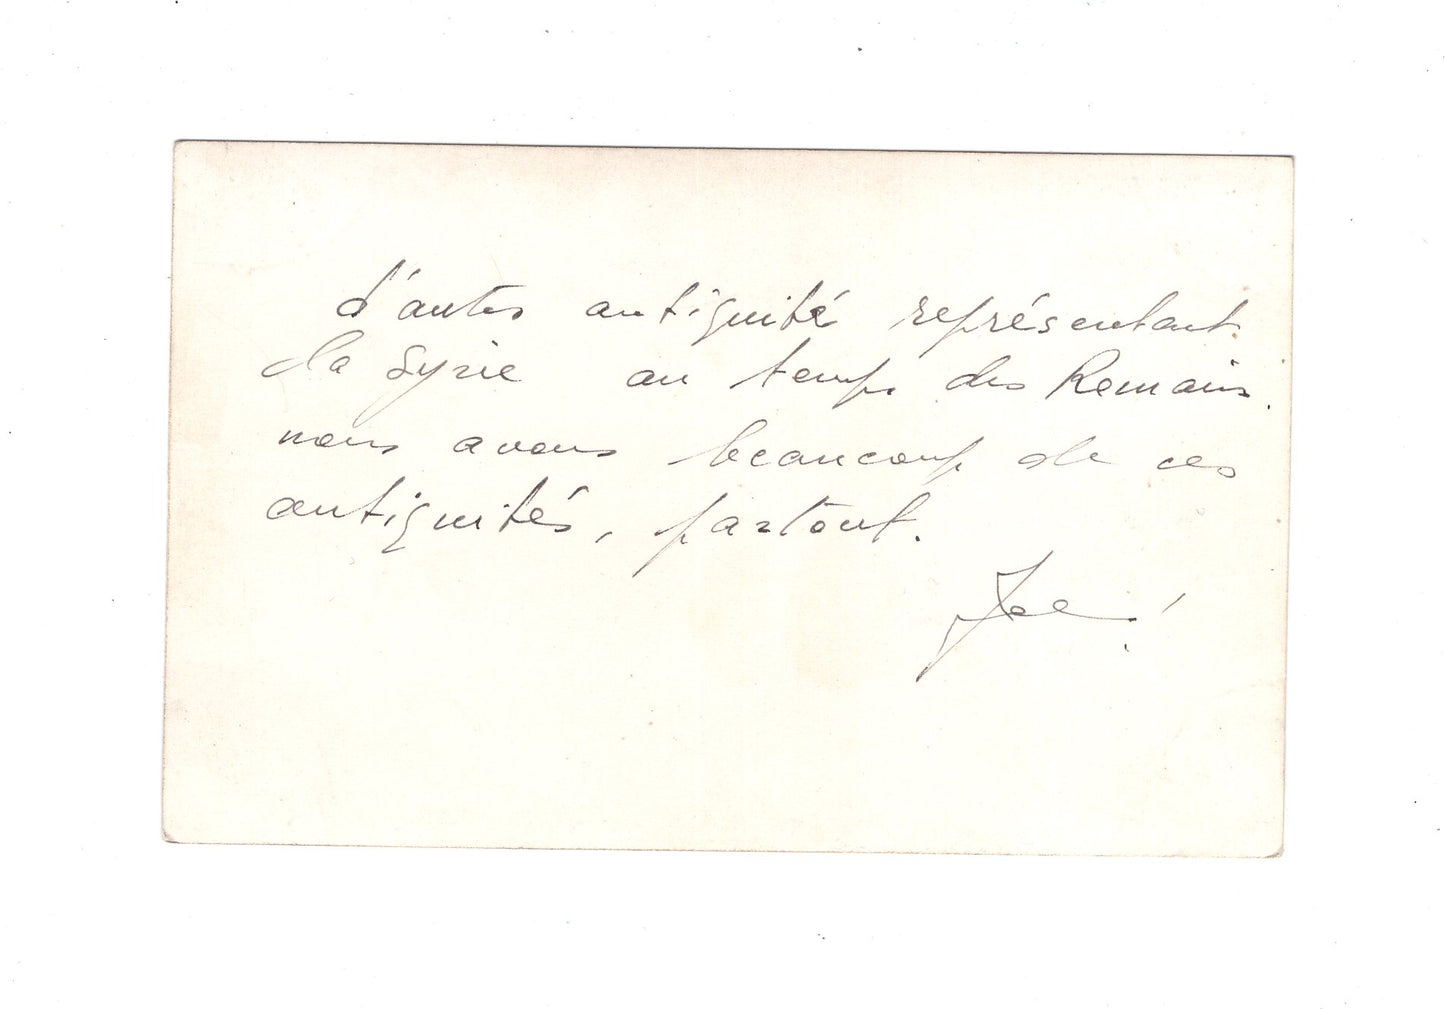 d'autres antiquité représentant
la Syrie au temps des Romains.
nous avons beaucoup de ces
antiquités, partout.